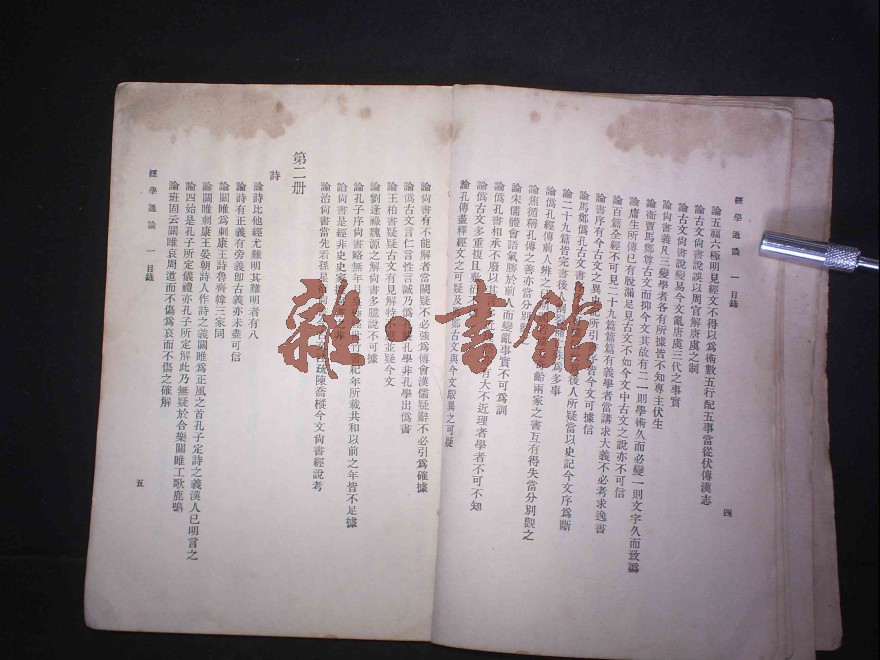 經學通論 一 目錄
四
論五福六極明見經文不得以爲術數五行配五事當從伏傳漢志
論古文尙書說誤以周官解唐虞之制
論古文尙書說變易今文亂唐虞三代之事實
論尙書義凡三變學者各有所據皆不知專主伏生
論衞賈馬鄭尊古文而抑今文其故有二一則學術久而必變一則文字久而致譌
論庸生所傳已有脫漏足見古文不如今文中古文之說亦不可信
論百篇全經不可見二十九篇篇篇有義學者當講求大義不必考求逸書
論書序有今古文之異史記所引書序皆今文可據信
論馬鄭僞孔古文書
論二十九篇皆完書後人
後人所疑當以史記今文序爲斷
論僞孔經傳前人辨之
爲多事
論焦循稱孔傳之善亦當分別
兩家之書互有得失當分別觀之
論宋儒體會語氣勝於前人而變亂事實不可爲訓
論僞孔書相承不廢以其
有大不近理者學者不可不知
論僞古文多重複且
論孔傳盡釋經文之可疑及
鄭古文與今文駁異之可疑
論尙書有不能解者當闕疑不必強爲傅會漢儒疑辭不必引爲確據
論僞古文言仁言性言誠乃僞
孔學非孔學出僞書
論王柏書疑疑古文有見解特不
並疑今文
論劉逢祿魏源之解尙書多臆說不可據
論孔子序尙書略無年月
紀年所載共和以前之年皆不足據
論尙書是經非史史家
之非
論治尙書當先看孫星衍尙書今古文注疏陳喬樅今文尙書經說考
第二册
詩
論詩比他經尤難明其難明者有八
論詩有正義有旁義卽古義亦未盡可信
論關雎爲刺康王詩魯齊韓三家同
論關雎刺康王晏朝詩人作詩之義關雎爲正風之首孔子定詩之義漢人已明言之
論四始是孔子所定儀禮亦孔子所定解此乃無疑於合樂關雎工歌鹿鳴
論班固云關雎哀周道而不傷爲哀而不傷之確解
經學通論 一 目錄
五
雜·書館